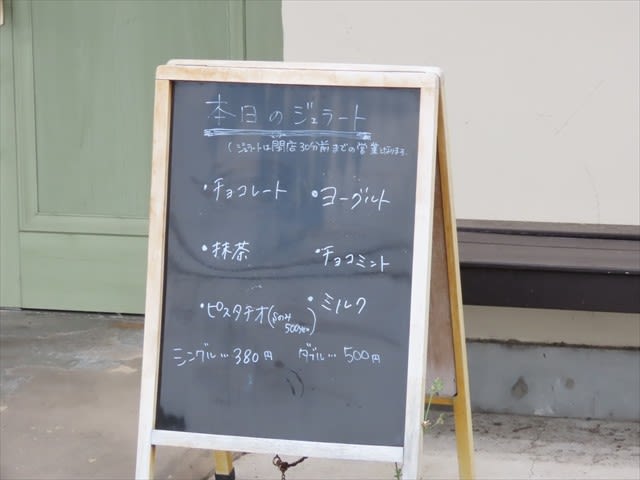 本日のジェラート
(ジェラートは閉店30分前までの営業となります。
・チョコレート ・ヨーグルト
・抹茶 ・チョコミント
・ピスタチオ( 500円 ) ・ミルク
シングル…380円 ダブル…500円